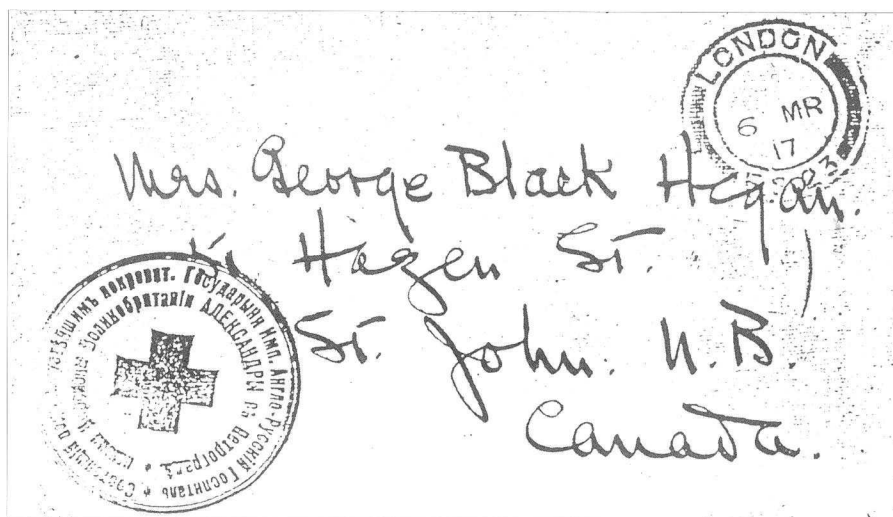 LONDON
6 MR
17
Mrs. George Black Hegan.
Hazen St.
St. John. N.B.
Canada.
покровит. Государыни Имп. Англо-Русскій Госпиталь * Состоящій
Великобританіи АЛЕКСАНДРЫ въ Петроградѣ